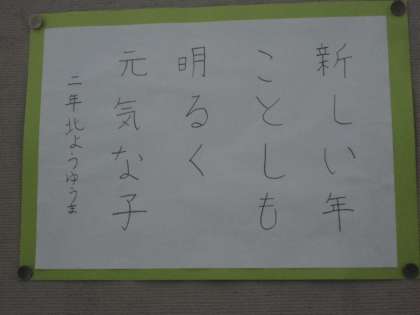 新しい年
ことしも
明るく
元気な子
二年北ようゆうま